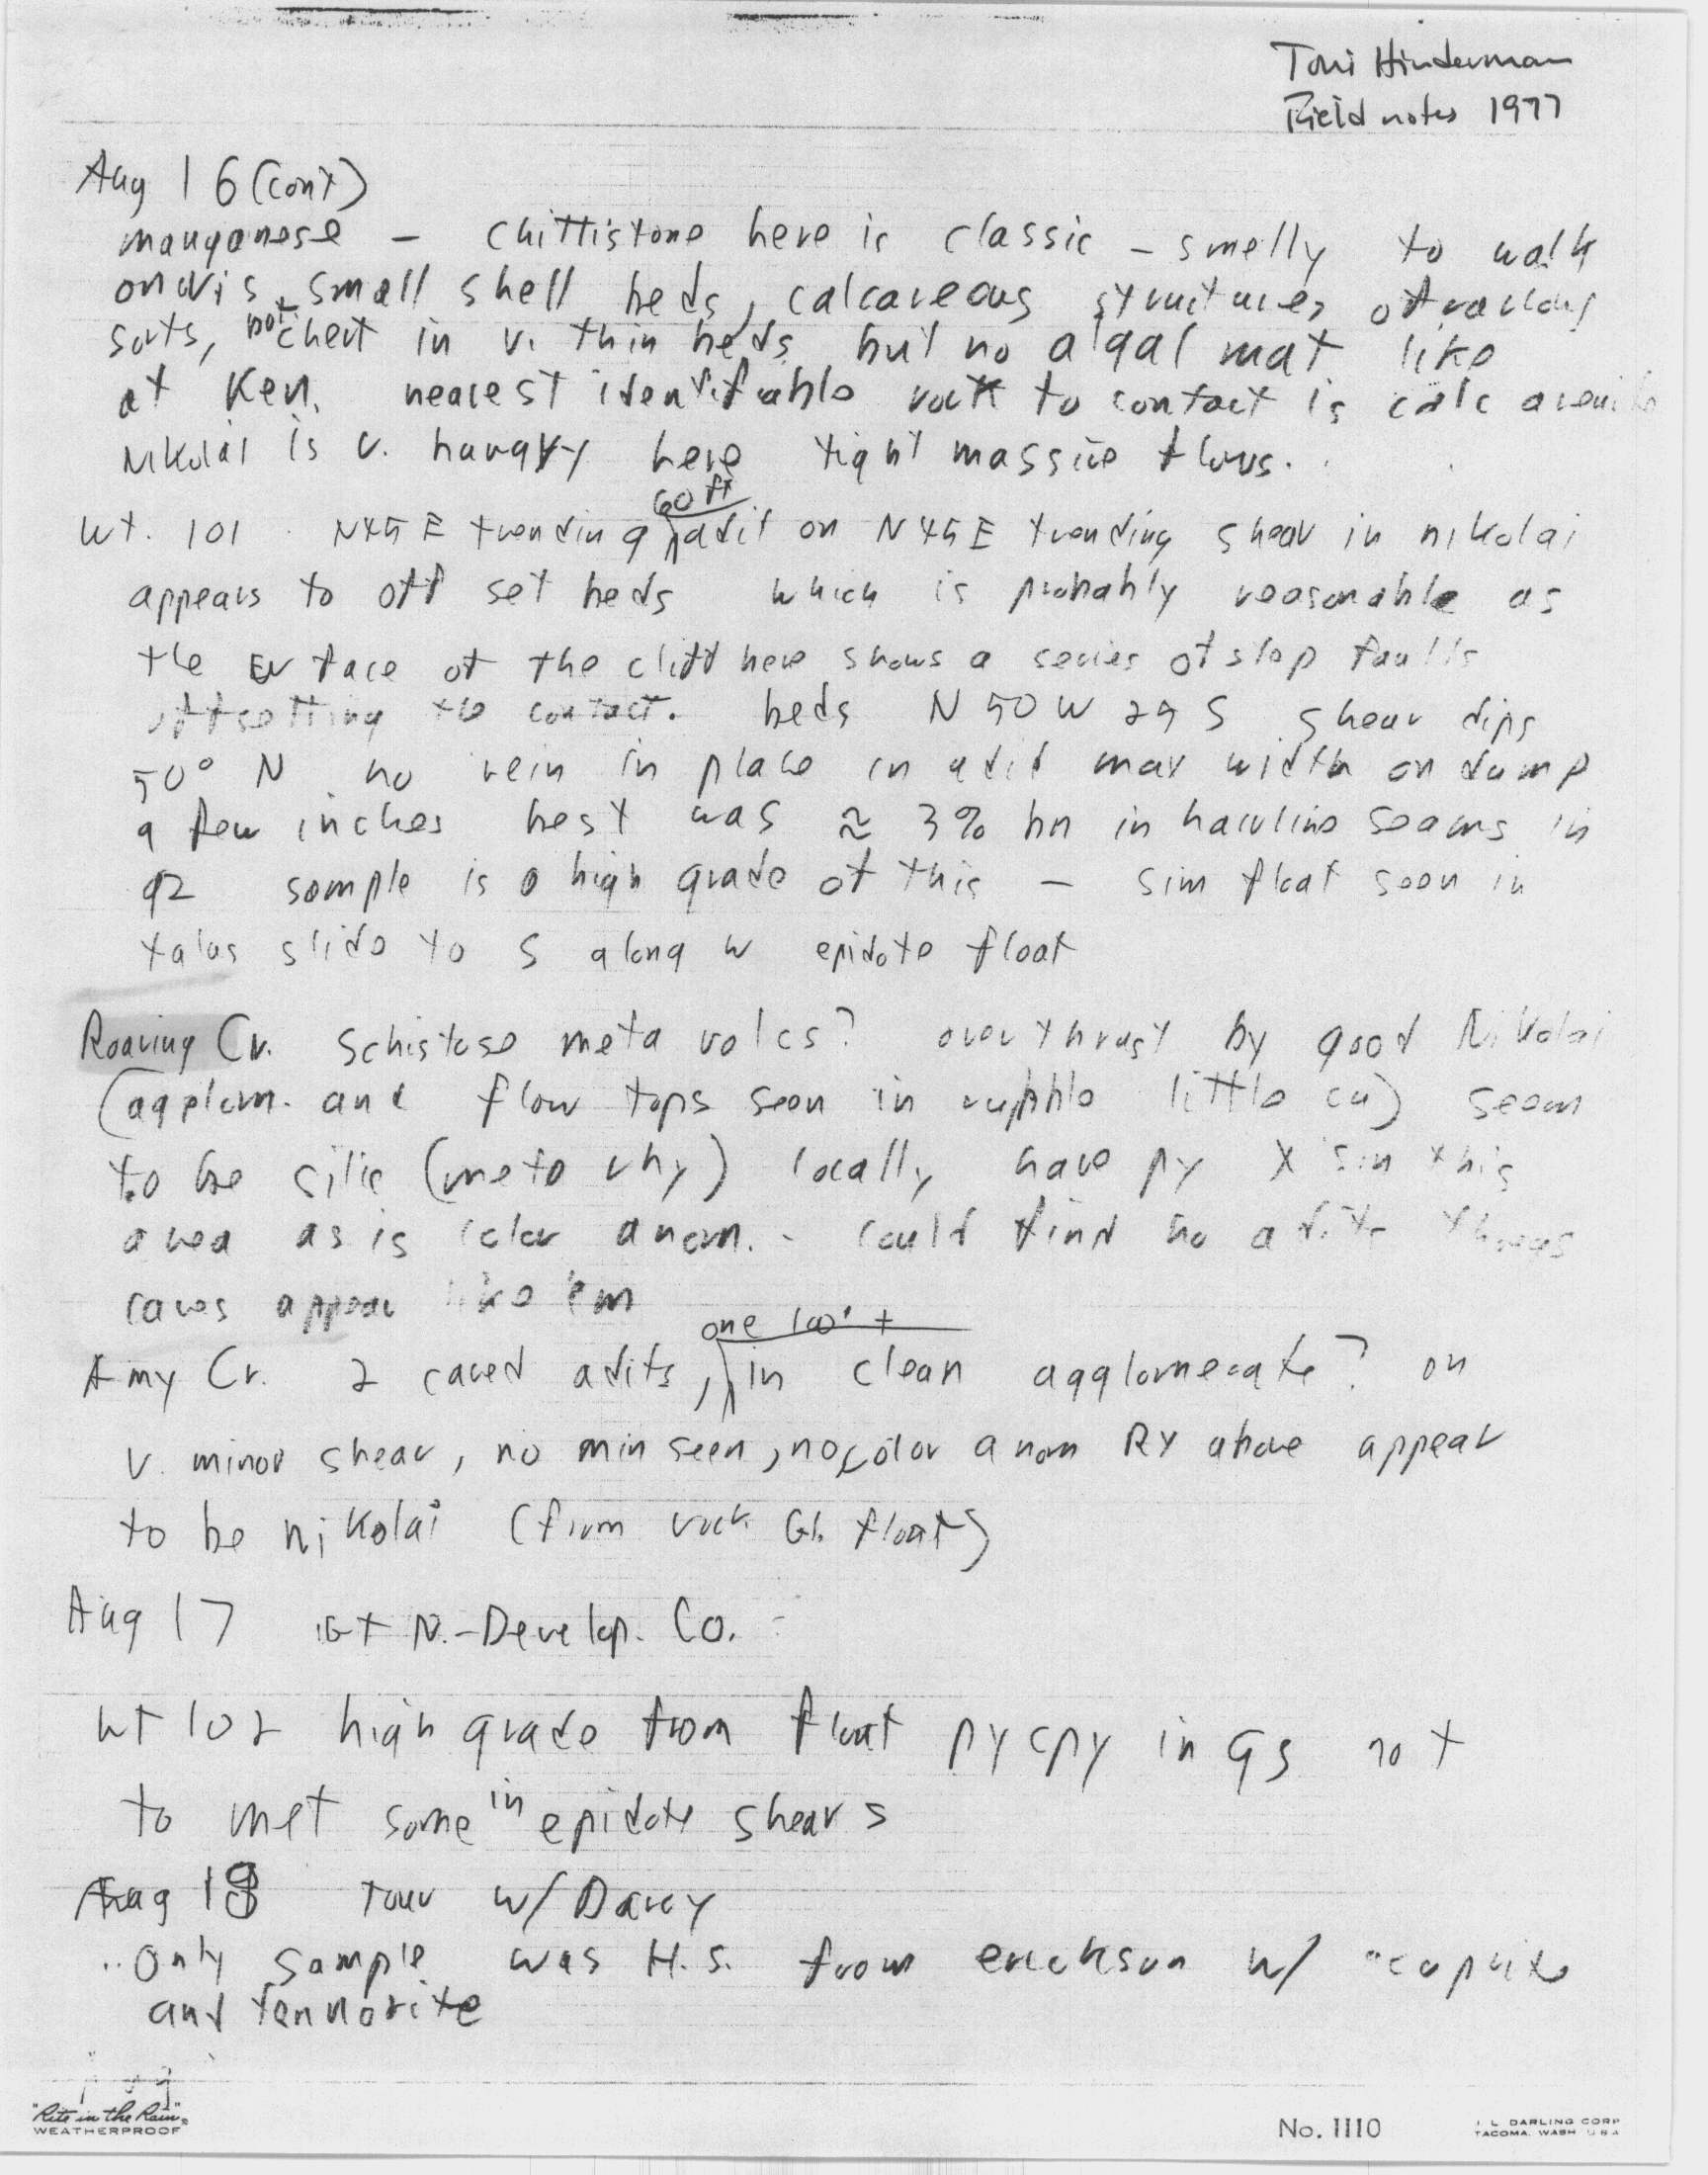 Toni Hinderman
Field notes 1977
Aug 16 (cont)
manganese – chittistone here is classic – smelly to walk
on vis small shell beds, calcareous structures of various
sorts, not chert in v. thin beds but no algal mat like
at Ken. nearest identifiable rock to contact is calc
Nikolai is v. hungry here tight massive flows.
60 ft
Wt. 101 N45E trending adit on N45E trending shear in nikolai
appears to off set beds which is probably reasonable as
the face of the cliff here shows a series of step faults
offsetting the contact. beds N 50 W 25 S shear dips
50° N no vein in place in adit max width on dump
a few inches best was ≈ 3% bn in hairline seams in
qz sample is a high grade of this – sim float seen in
talus slide to S along w epidote float
Roaring Cr. Schistose meta volcs? over thrust by good Nikolai
(agglom. and flow tops seen in rubble little cu) seem
to be silic (meto rhy) locally have py X's in this
area as is color anom. - could find no adits
caves appear like 'em
one 100' +
Amy Cr. 2 caved adits, in clean agglomerate? on
v. minor shear, no min seen, no color anom RX above appear
to be nikolai (from rock Gl. float)
Aug 17 Gt N.-Develop. Co.
Wt 102 high grade from float py cpy in GS not
to met some in epidote shears
Aug 18 Tour w/ Darcy
Only sample was H.S. from erickson w/ cuprite
and tennorite
"Rite in the Rain"
WEATHERPROOF
No. 1110
J L DARLING CORP
TACOMA, WASH U S A